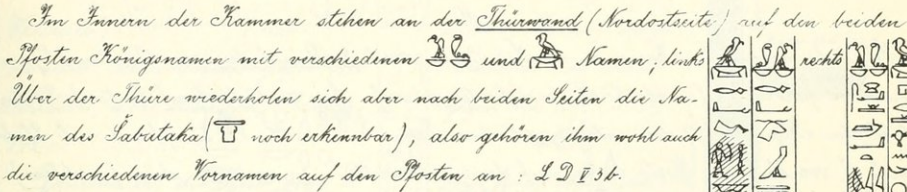 Im Innern der Kammer stehen an der Thürwand (Nordostseite) auf den beiden
Pfosten Königsnamen mit verschiedenen 𓅒𓆗 und 𓅉 Namen; links rechts
Über der Thüre wiederholen sich aber nach beiden Seiten die Na-
men des Šabataka ( noch erkennbar), also gehören ihm wohl auch
die verschiedenen Vornamen auf den Pfosten an : L D V 3b.